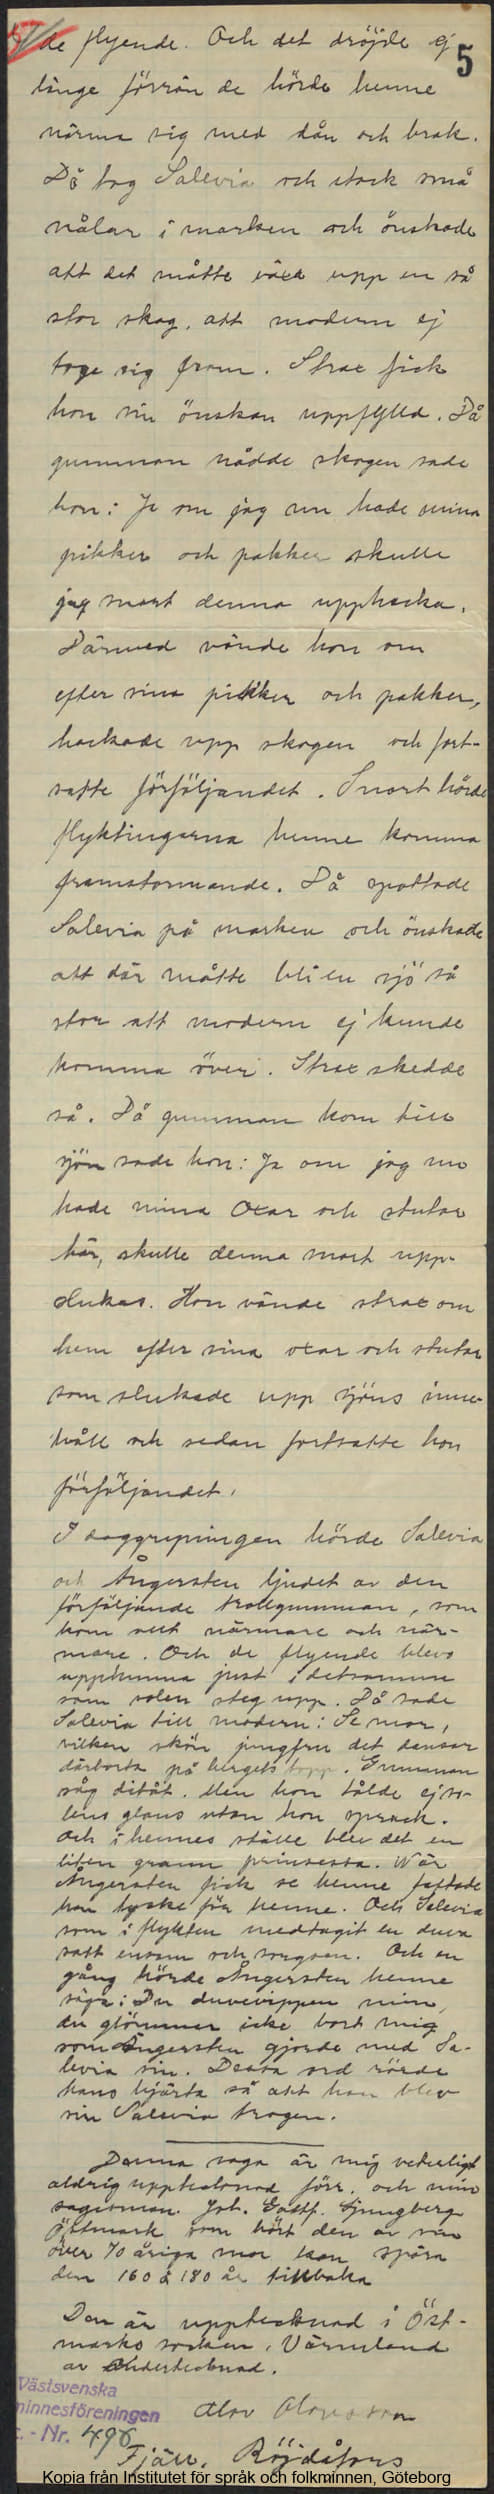 de flyende. Och det dröjde ej
5
länge förrän de hörde henne
närma sig med dån och brak.
Då tog Salevia och stack små
nålar i marken och önskade
att det måtte växa upp en så
stor skog, att modern ej
toge sig fram. Strax fick
hon sin önskan uppfylld. Då
gumman nådde skogen sade
hon: Ja om jag nu hade mina
pikker och pakker skulle
jag snart denna upphacka.
Därmed vände hon om
efter sina pikker och pakker,
hackade upp skogen och fort-
satte förföljandet. Snart hörde
flyktingarna henne komma
framstormande. Då spottade
Salevia på marken och önskade
att där måtte bli en sjö så
stor att modern ej kunde
komma över. Strax skedde
så. Då gumman kom till
sjön sade hon: Ja om jag nu
hade mina oxar och stutar
här, skulle denna snart upp-
slukas. Hon vände strax om
hem efter sina oxar och stutar
som slukade upp sjöns inne-
håll och sedan fortsatte hon
förföljandet.
I daggryningen hörde Salevia
och Ångersten ljudet av den
förföljande trollgumman, som
kom allt närmare och när-
mare. Och de flyende blevo
upphunna just i detsamma
som solen steg upp. Då sade
Salevia till modern: Se mor,
vilken skön jungfru det dansar
därborta på bergets topp. Gumman
såg ditåt. Men hon tålde ej so-
lens glans utan hon sprack.
Och i hennes ställe blev det en
liten grann prinsessa. När
Ångersten fick se henne fattade
han tycke för henne. Och Salevia
som i flykten medtagit en duva
satt ensam och sorgsen. Och en
gång hörde Ångersten henne
säga: Du duvevippen min,
du glömmer icke bort mig
som Ångersten gjorde med Sa-
levia sin. Dessa ord rörde
hans hjärta så att han blev
sin Salevia trogen.
Denna saga är mig veterligt
aldrig upptecknad förr, och min
sagesman. Joh. Gustf. Ljungberg
Östmark som hört den av sin
över 70 åriga mor kan spåra
den 160 à 180 år tillbaka
Den är upptecknad i Öst-
marks socken, Värmland
av undertecknad.
Västsvenska
minnesföreningen
- Nr. 496
Olov Olovsson
Fjäll, Röjdåfors
Kopia från Institutet för språk och folkminnen, Göteborg